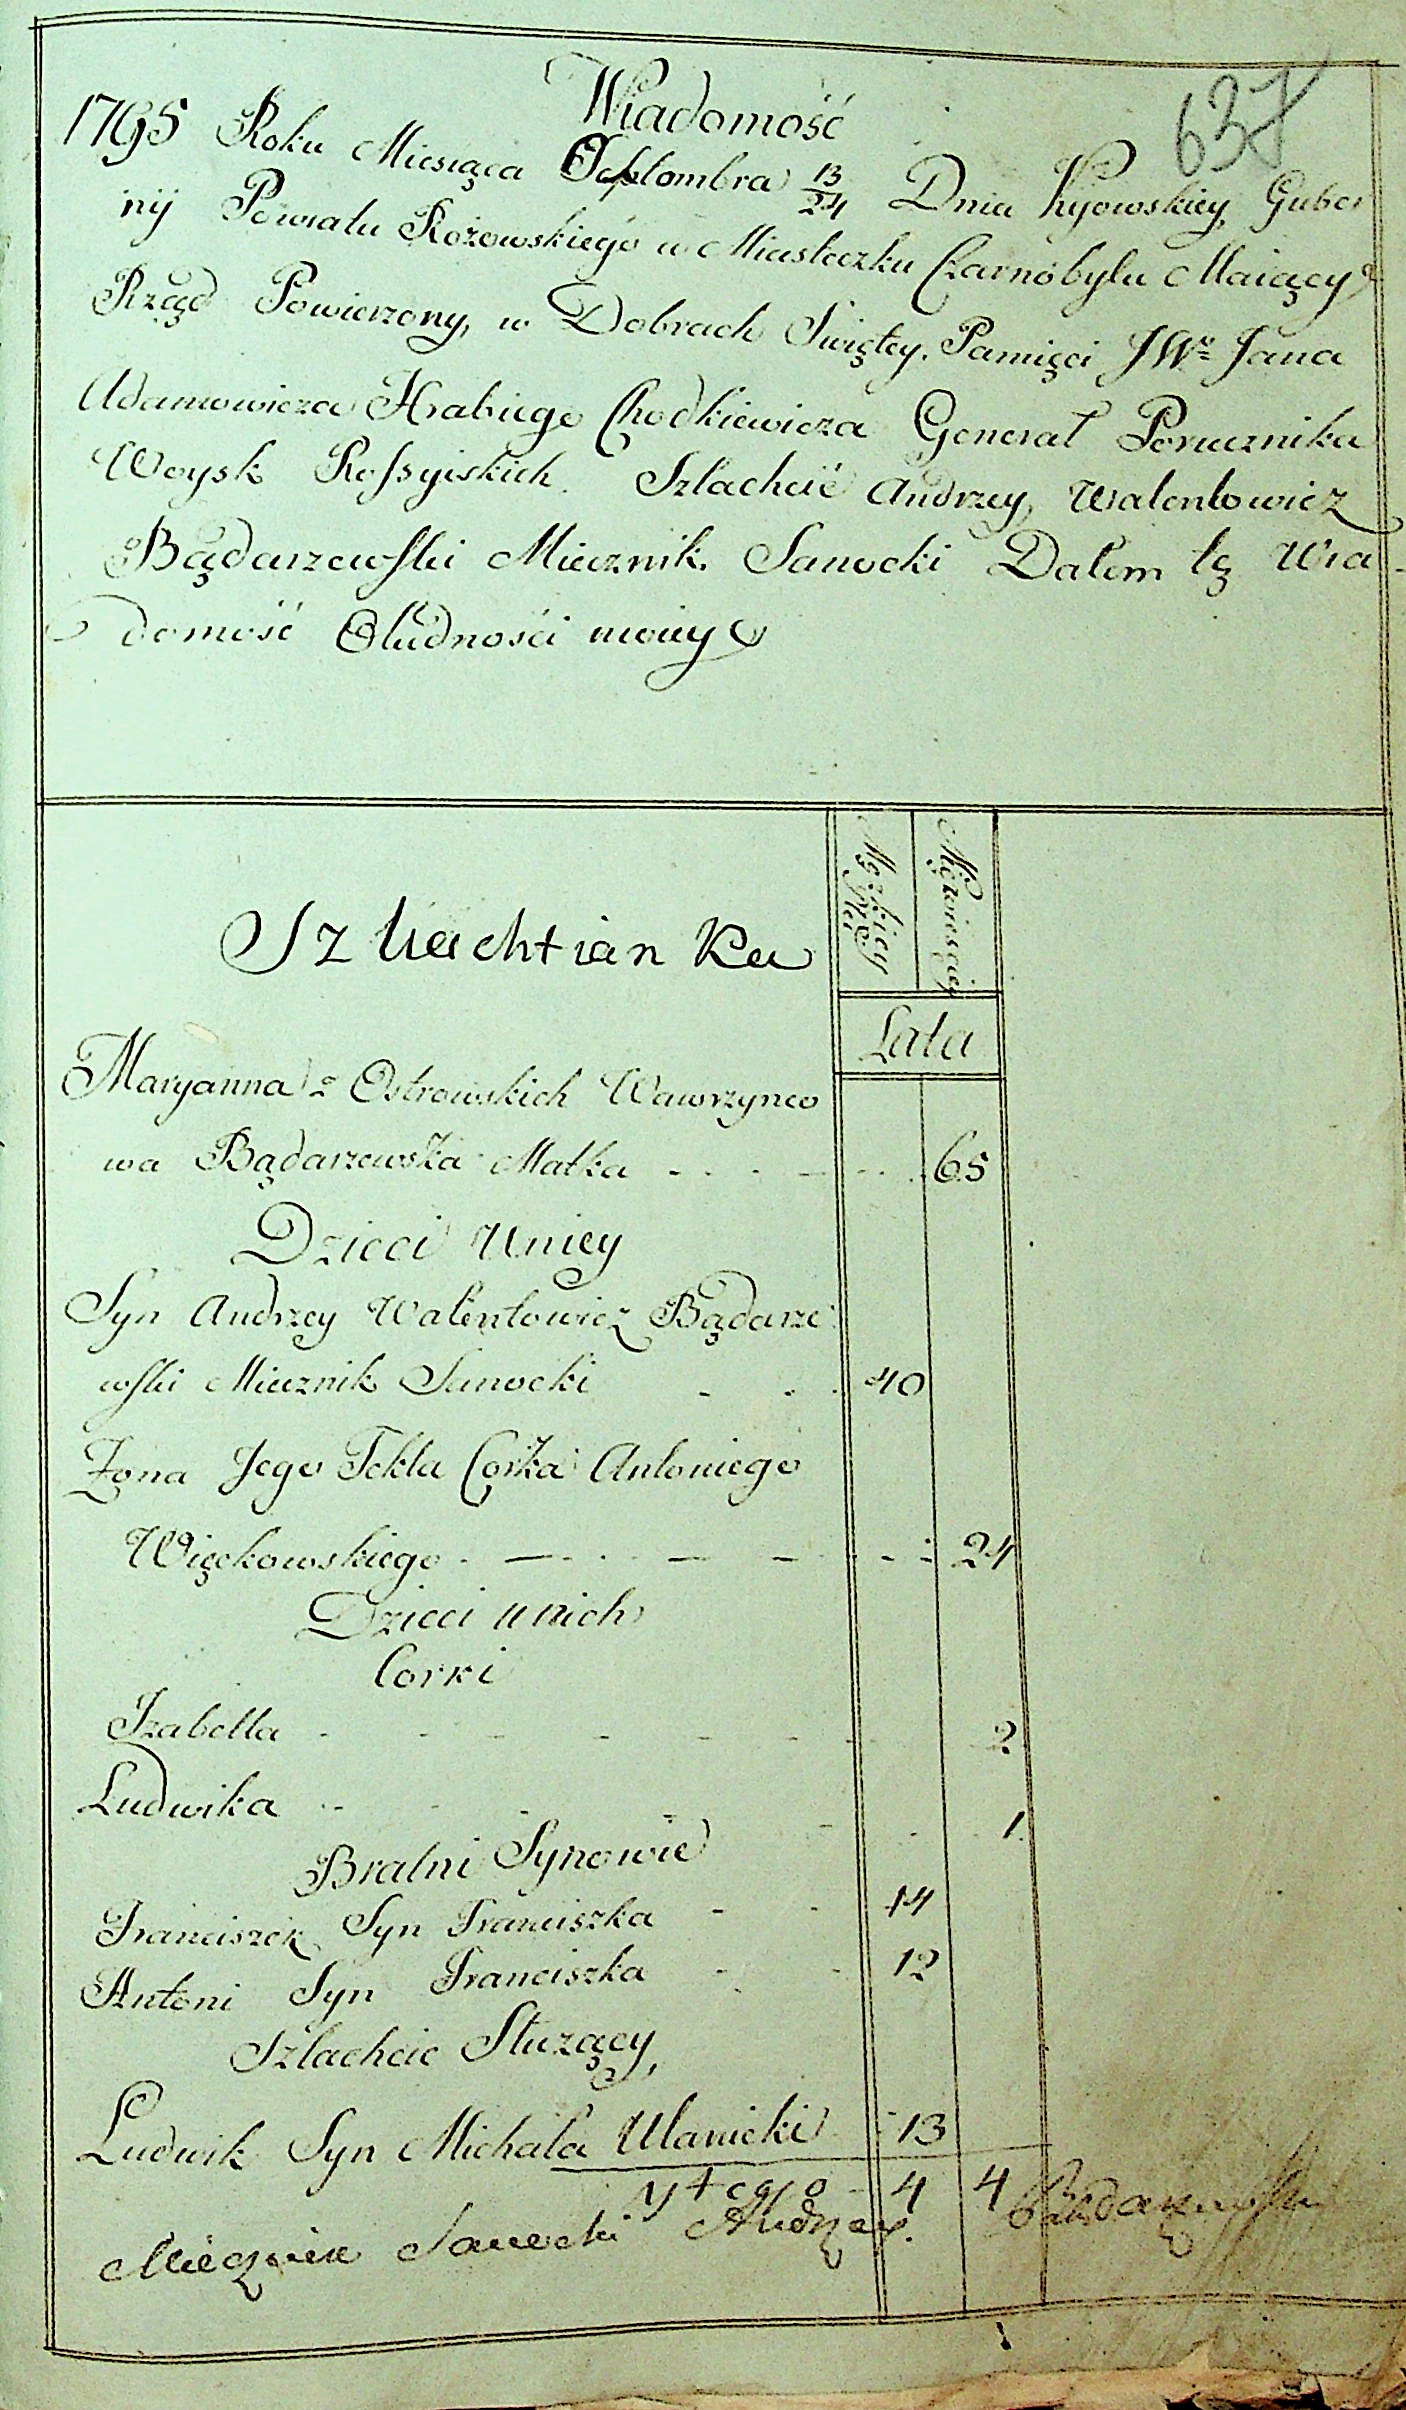 637
Wiadomość
1795 Roku Miesiąca Septembra 13/24 Dnia Kyowskiey Guber
nij Powiatu Rożowskiego w Miasteczku Czarnobylu Maiący
Rząd Powierzony, w Dobrach Swiętey Pamięci JWo Jana
Adamowicza Hrabiego Chodkiewicza Generał Porucznika
Woysk Rossyiskich Szlachcić Andrzey Walentowicz
Bądarzewski Miecznik Sanocki Dałem tę Wia
domość Oludności moiey
Szlachtianka
Męzkiey Płci
Niewiesciey
Lata
Maryanna z Ostrowskich Wawrzynco
wa Bądarzewska Matka 65
Dzieci Uniey
Syn Andrzey Walentowicz Bądarze
wski Miecznik Sanocki 40
Żona Jego Tekla Corka Antoniego
Więckowskiego 24
Dzieci unich
Corki
Izabella 2
Ludwika 1
Bratni Synowie
Franciszek Syn Franciszka 14
Antoni Syn Franciszka 12
Szlachcic Służący
Ludwik Syn Michała Ulanicki 13
ytego 4 4
Miecznik Sanocki Andrzey Bądarzewski